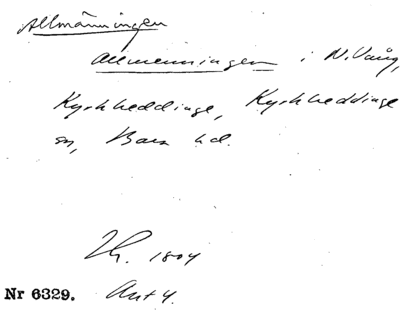 Allmänningen
Allmenningen i N. Vång,
Kyrkheddinge, Kyrkheddinge
sn, Bara hd.
1804
Nr 6329. Akt 4.